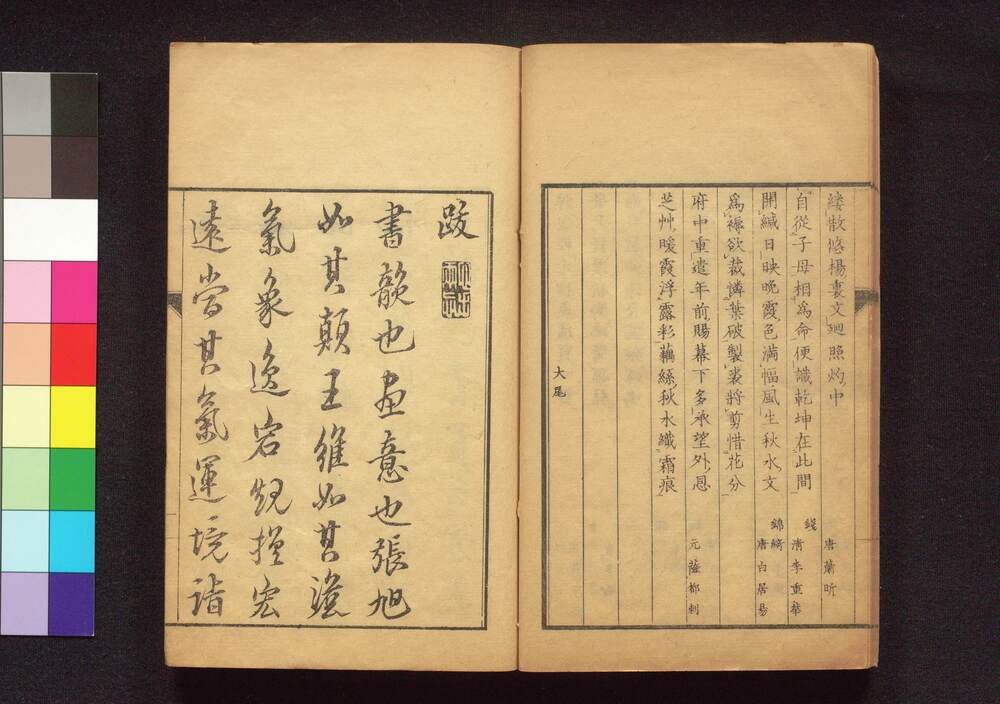 縷散悠揚裏文廻照灼中 唐蕭昕
自從子母相為命便識乾坤在此間 錢 清李重華
開緘日映晚霞色滿幅風生秋水文 錦綺 唐白居易
為褥欲裁憐葉破製裘將剪惜花分
府中重遣年前賜幕下多承望外恩 元薩都剌
芝艸暖霞浮露彩藕絲秋水織霜痕
大尾
跋
書韻也畫意也張旭
如其顛王維如其澹
氣象逸宕規撫宏
遠當其氣運境詣